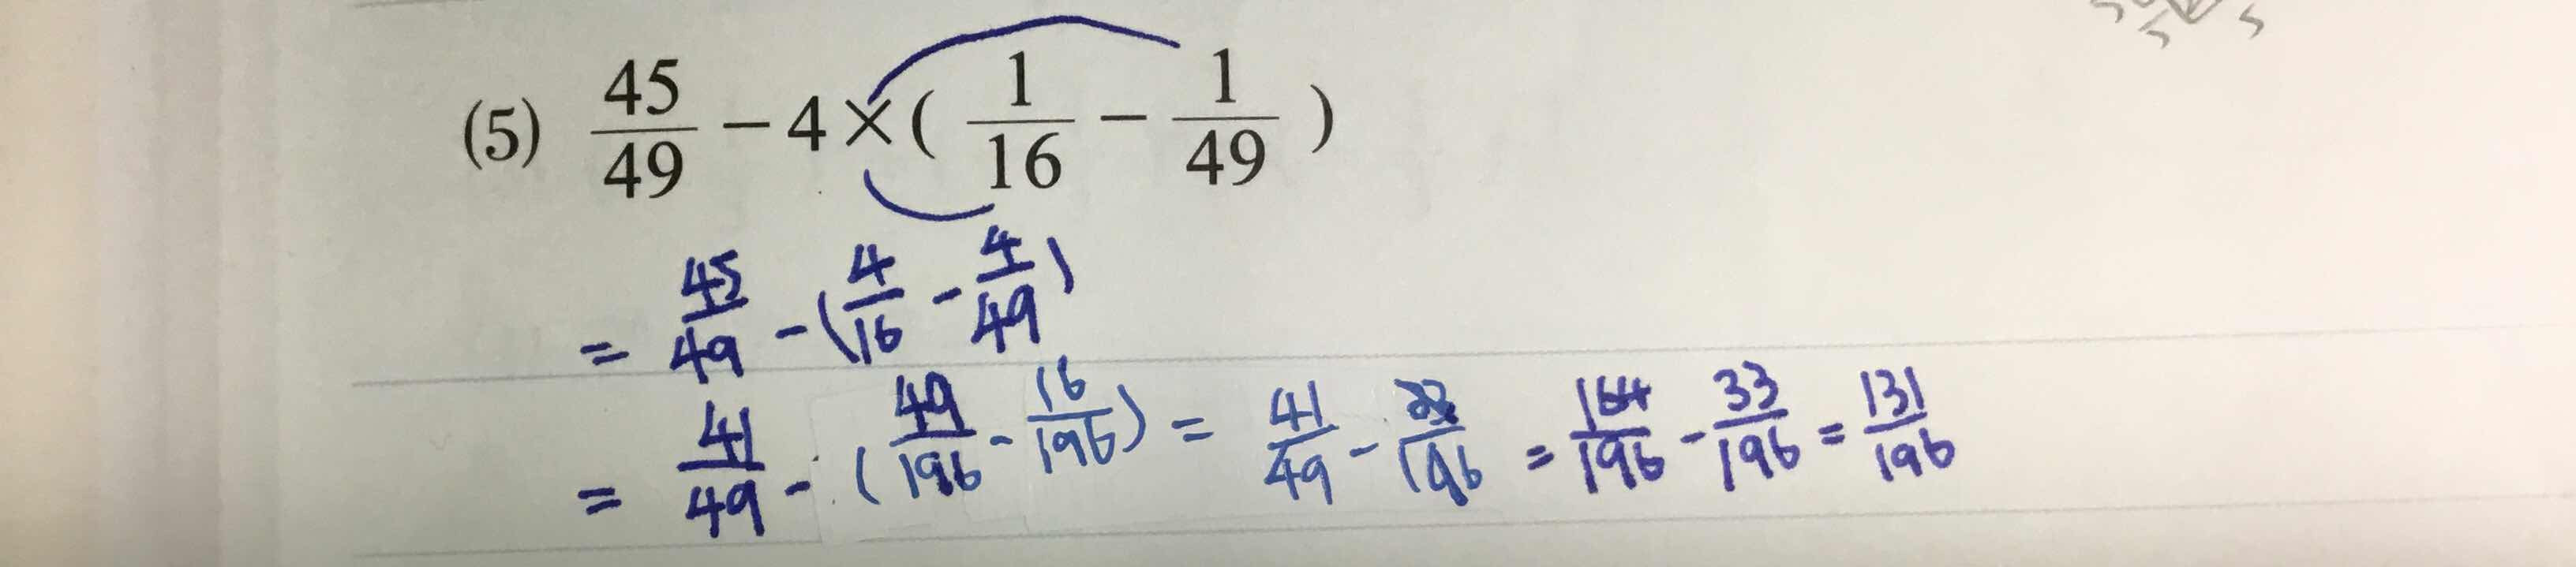 (5) 45/49 − 4×( 1/16 − 1/49 )
= 45/49 − (4/16 − 4/49)
= 41/49 − (49/196 − 16/196) = 41/49 − 33/196 = 164/196 − 33/196 = 131/196